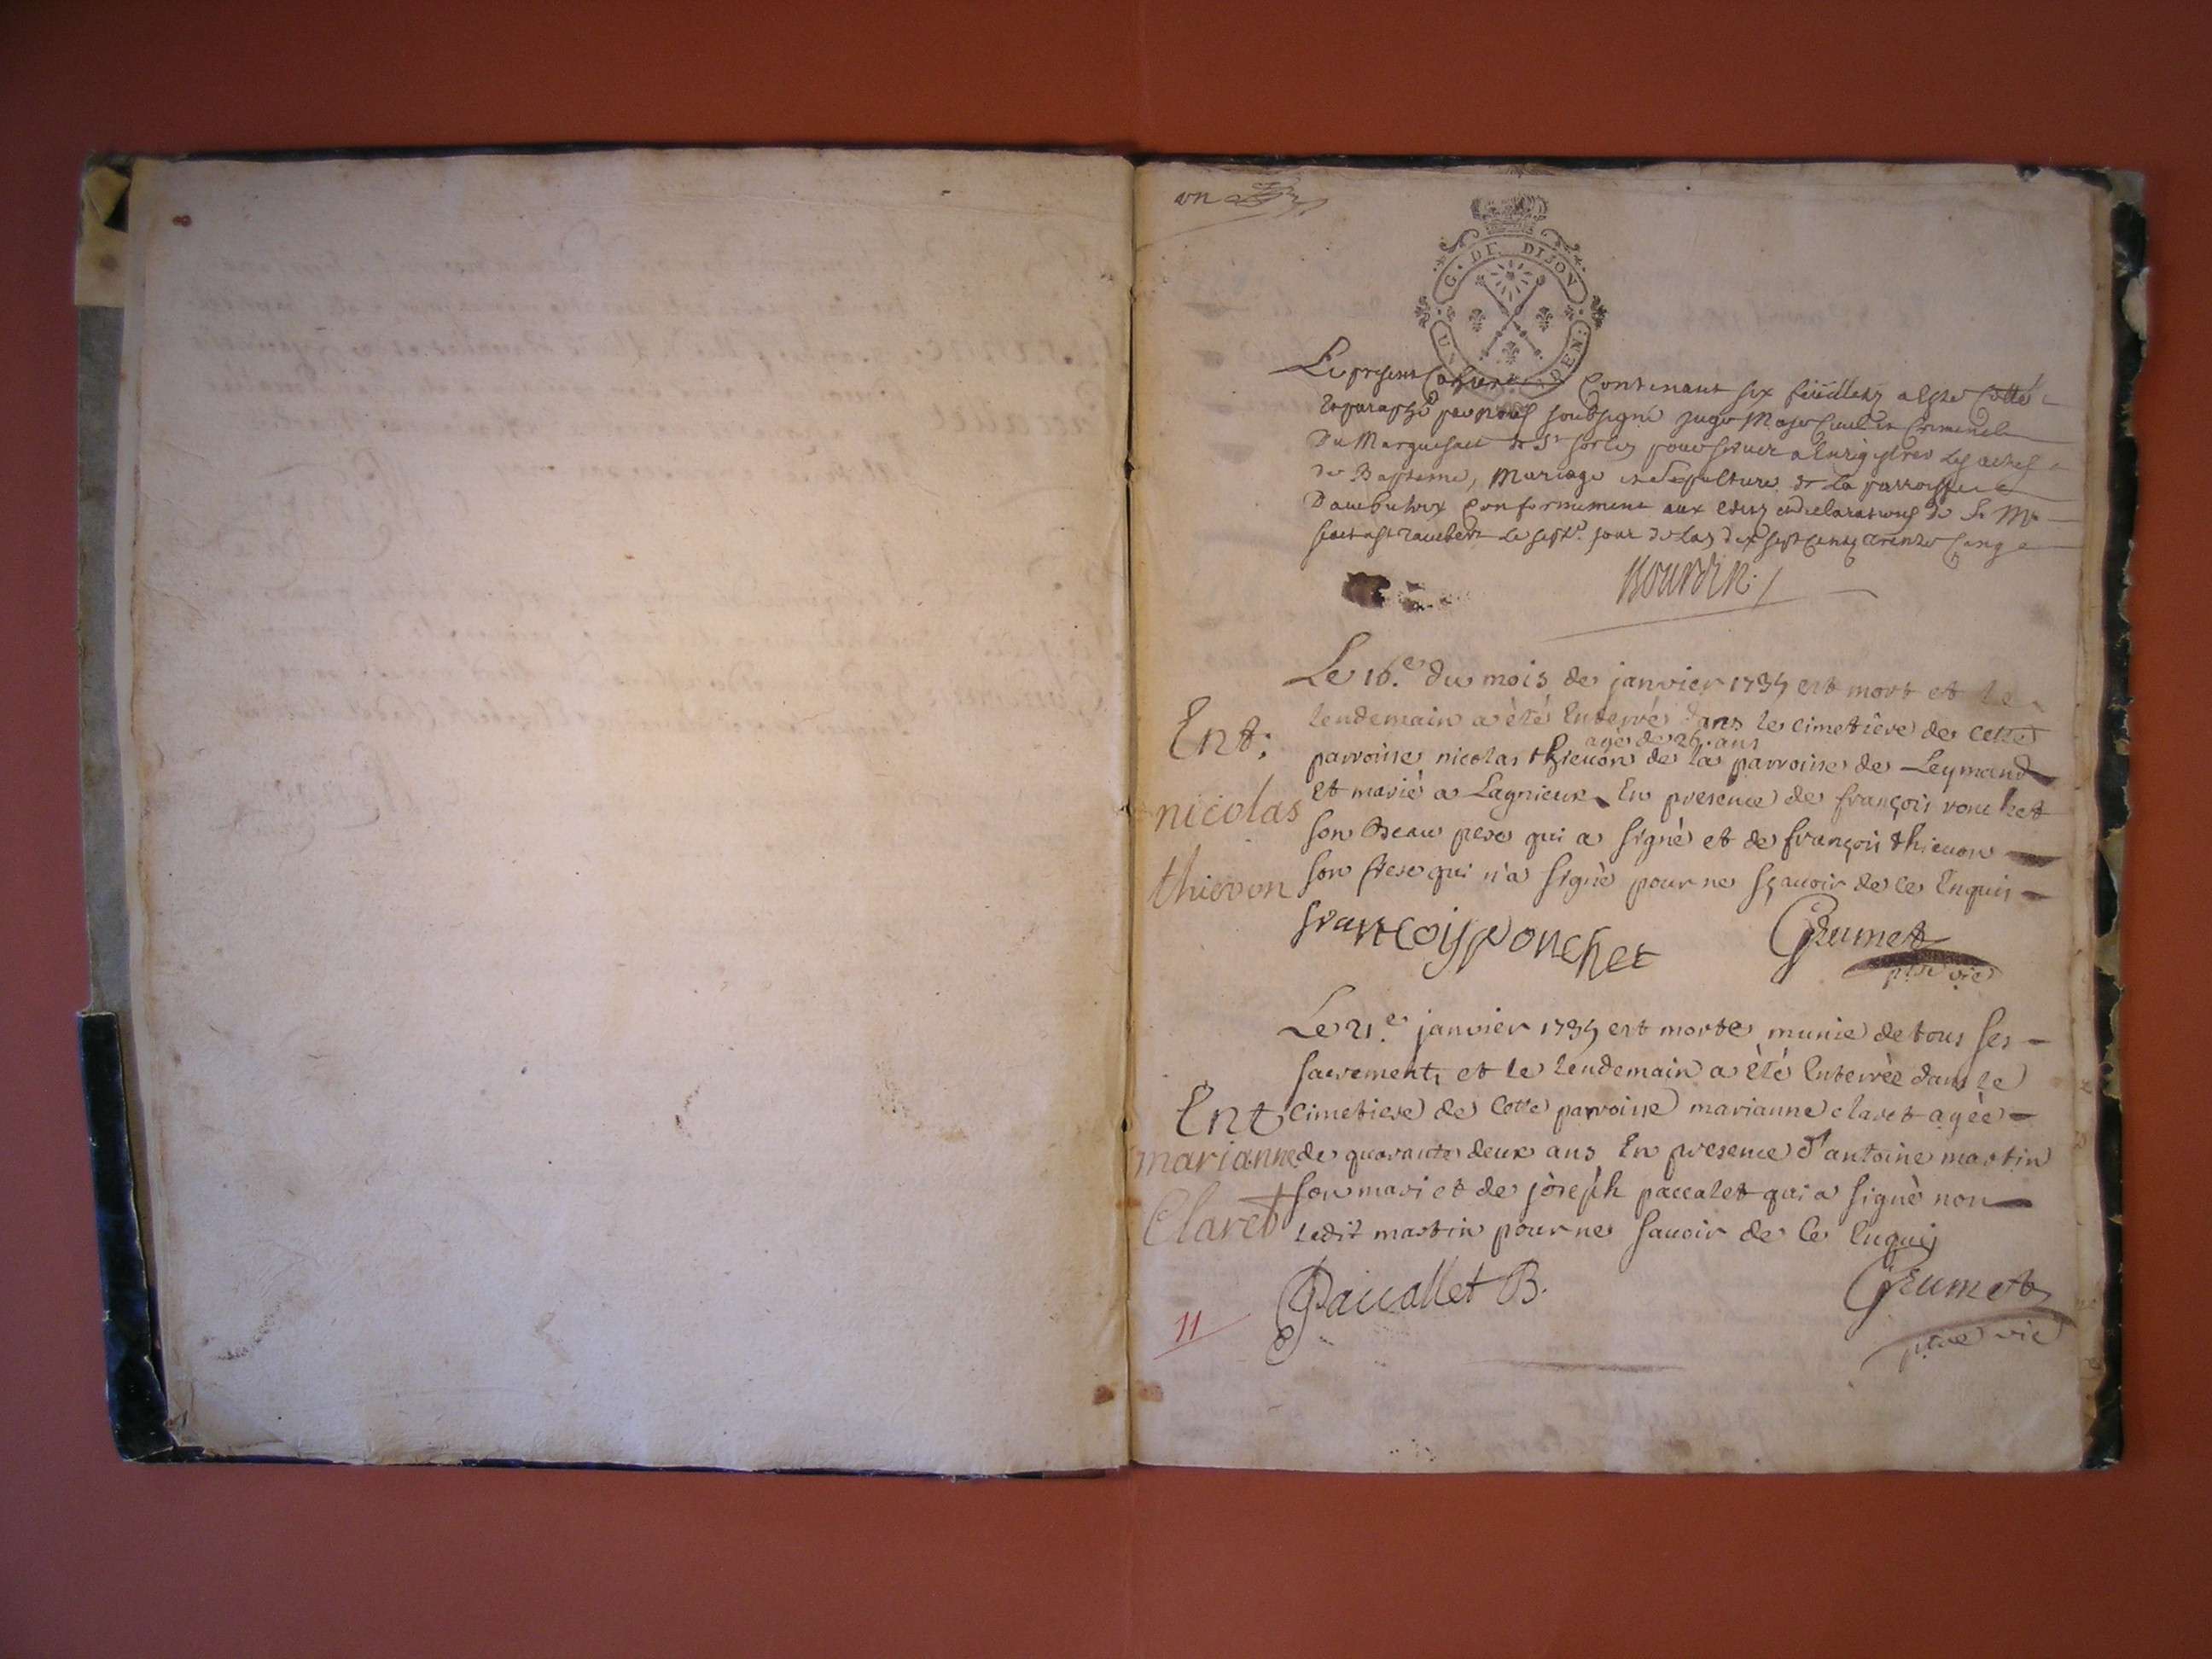 un
G. DE. DIJON
Le present Cahier Contenant six feüillets a esté Cotté
et paraphé par nous soubsigné juge Maje Civil et Criminel
Du Marquisact de St Sorlin pour servir a Enregistrer les actes
de Bapteme, Mariage et Sepulture de La parroisse
Dambutrix Conformement aux edits et declarations de Sa Mté
fait a St rambert Le sept.e jour de L'an dix sept Cents trente Cinq
Bourdin
Le 16.e du mois de janvier 1735 est mort et le
lendemain a été Enterré dans le cimetière de cette
agé de 26. ans
parroisse nicolas thievon de la parroisse de Leymand
Et marié a Lagnieux En presence de françois ronchet
son Beau pere qui a signé et de françois thievon
son frere qui n'a signé pour ne sçavoir de ce Enquis
Ent:
nicolas
thievon
francois ronchet
Grumet
ptre vic
Le 21.e janvier 1735 est morte munie de tous ses
sacrements et le lendemain a été Enterrée dans le
cimetiere de cette parroisse marianne claret agée
de quarante deux ans En presence d'antoine martin
son mari et de joseph paccalet qui a signé non
ledit martin pour ne savoir de ce Enquis
Ent
marianne
Claret
Paccallet B.
Grumet
ptre vic
11